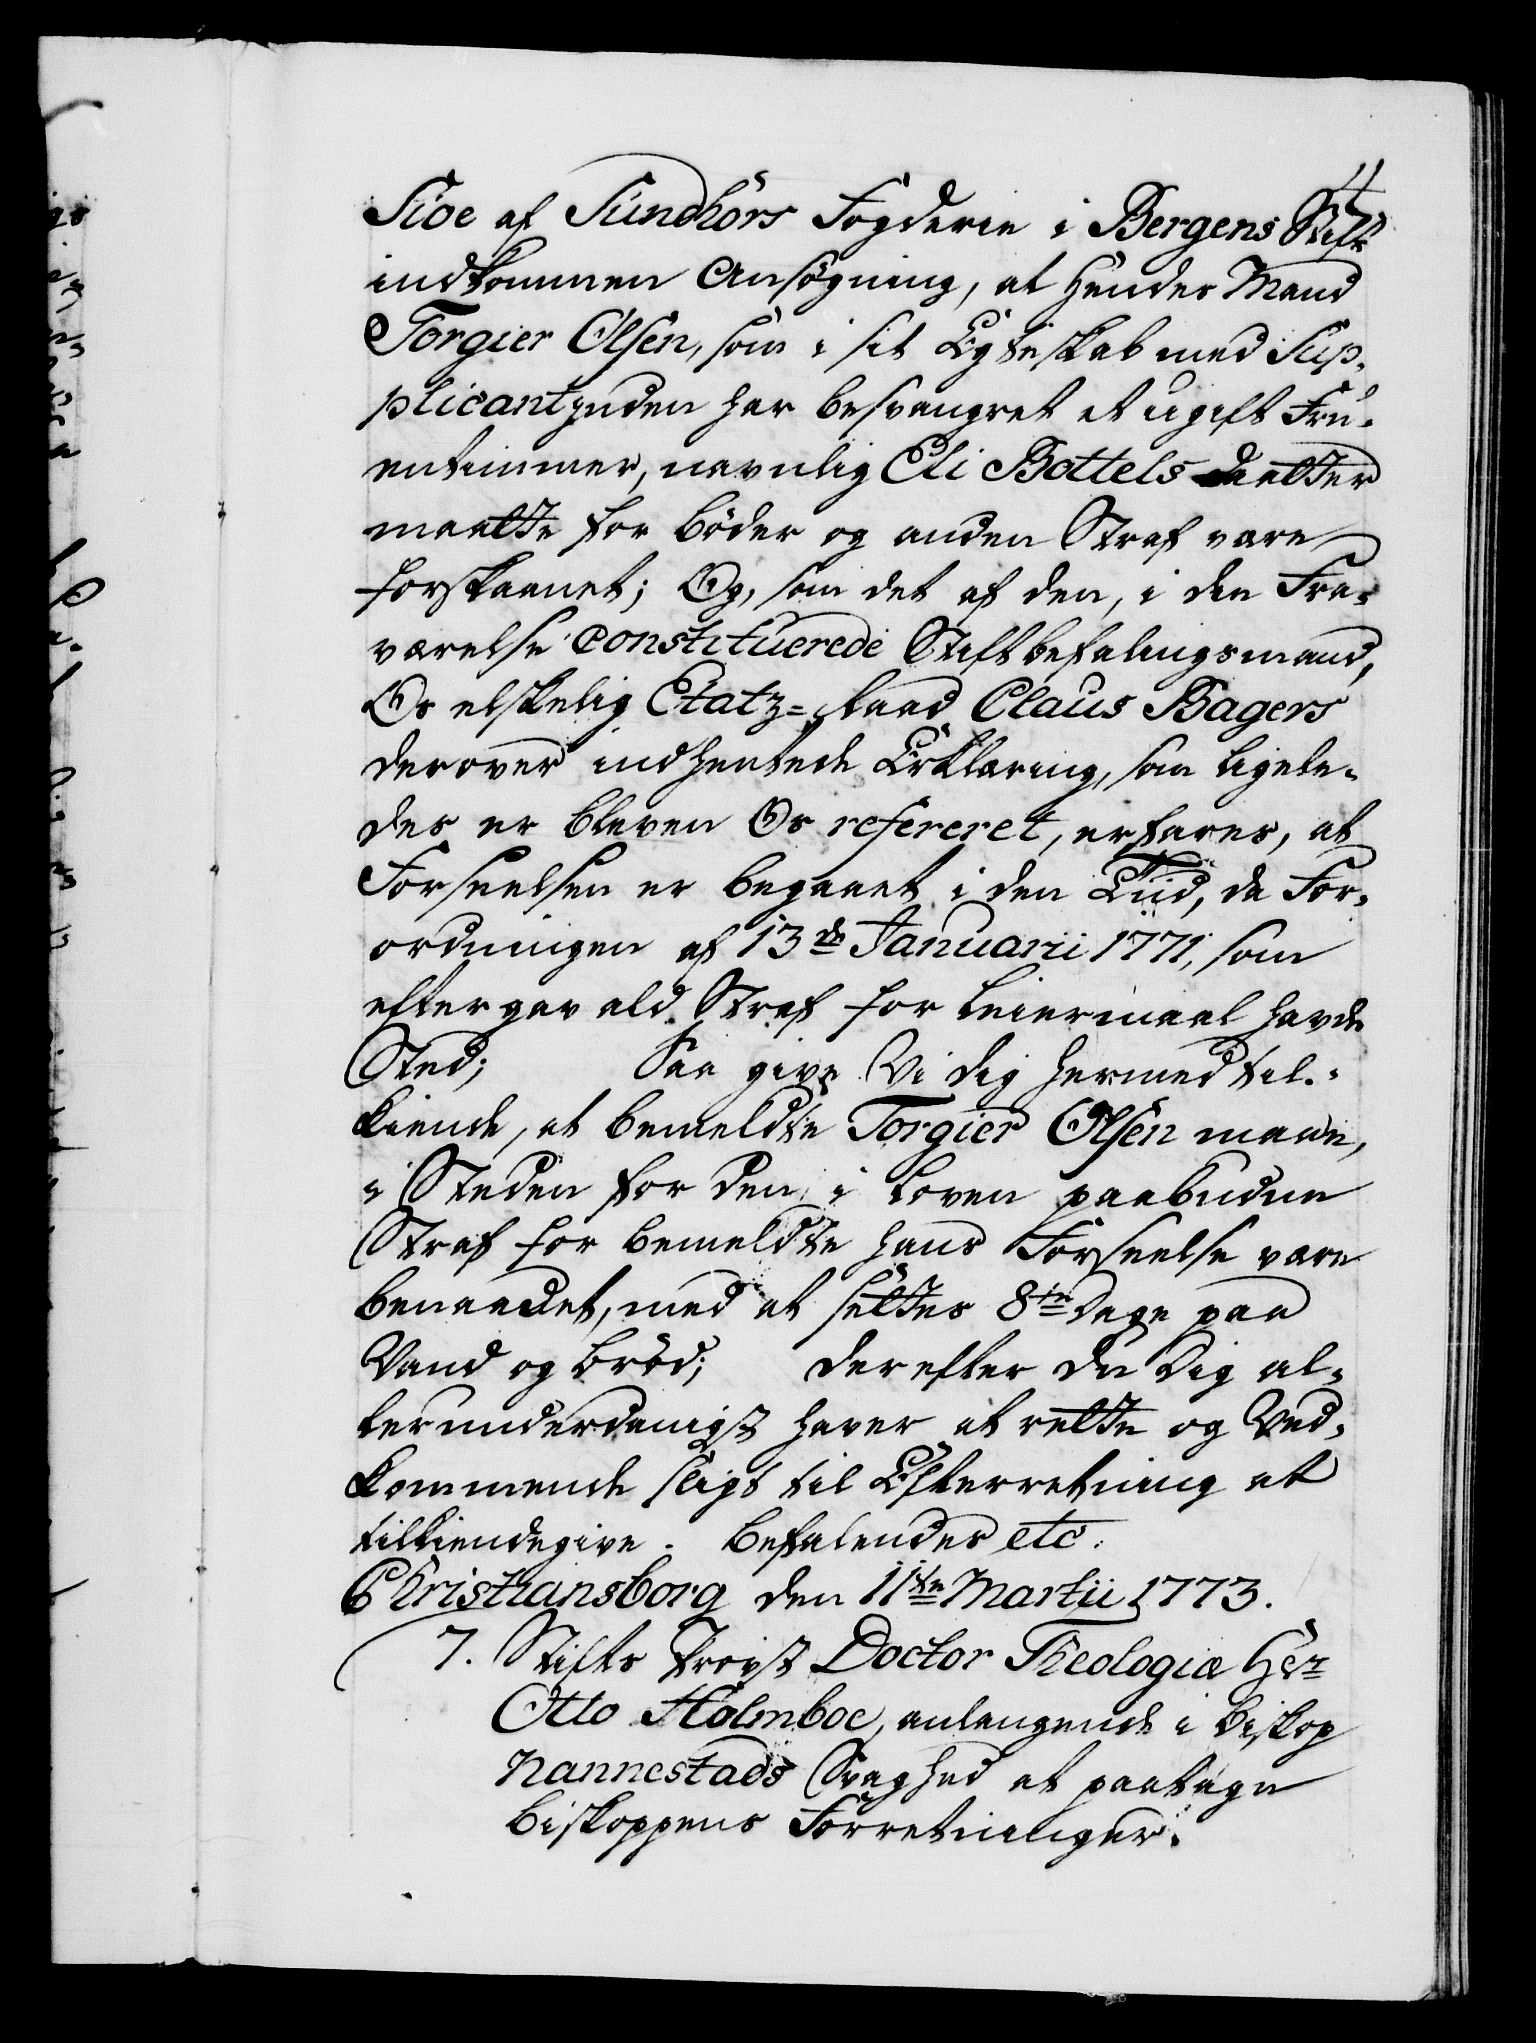 Sioe af Sundhörs Fogderie i Bergens Stift
indkommen Ansøgning, at Hendes Mand
Torgier Olsen, som i sit Egteskab med Sup-
plicantinden har besvangret et ugift Fru-
entimmer, navnlig Eli Bottels daatter
maatte for Bøder og anden Straf være
forskaanet; Og, som det af den, i din Fra-
værelse constituerede Stiftbefalingsmand,
Os elskelig Etatz-Raad Claus Bagers
derover indhentede Erklæring, som ligele-
des er bleven Os refereret, erfares, at
Forseelsen er begaaet i den Tiid, da For-
ordningen af 13de Januarii 1771, som
eftergav ald Straf for Leiermaal havde
Sted; Saa give Vi dig hermed til-
kiende, at bemeldte Torgier Olsen maae,
i Steden for den i Loven paabudne
Straf for bemeldte hans Forseelse være
benaadet, med at settes 8te Dage paa
Vand og Brød; derefter du dig al-
lerunderdanigst haver at rette og Ved-
kommende sligt til Efterretning at
tilkiendegive. Befalendes etc.
Christiansborg den 11te Martii 1773.
7. Stifts Provst Doctor Theologiæ Her
Otto Holmboe, anlangende i Biskop
Nannestads Svaghed at paatage
Biskoppens Forretninger.